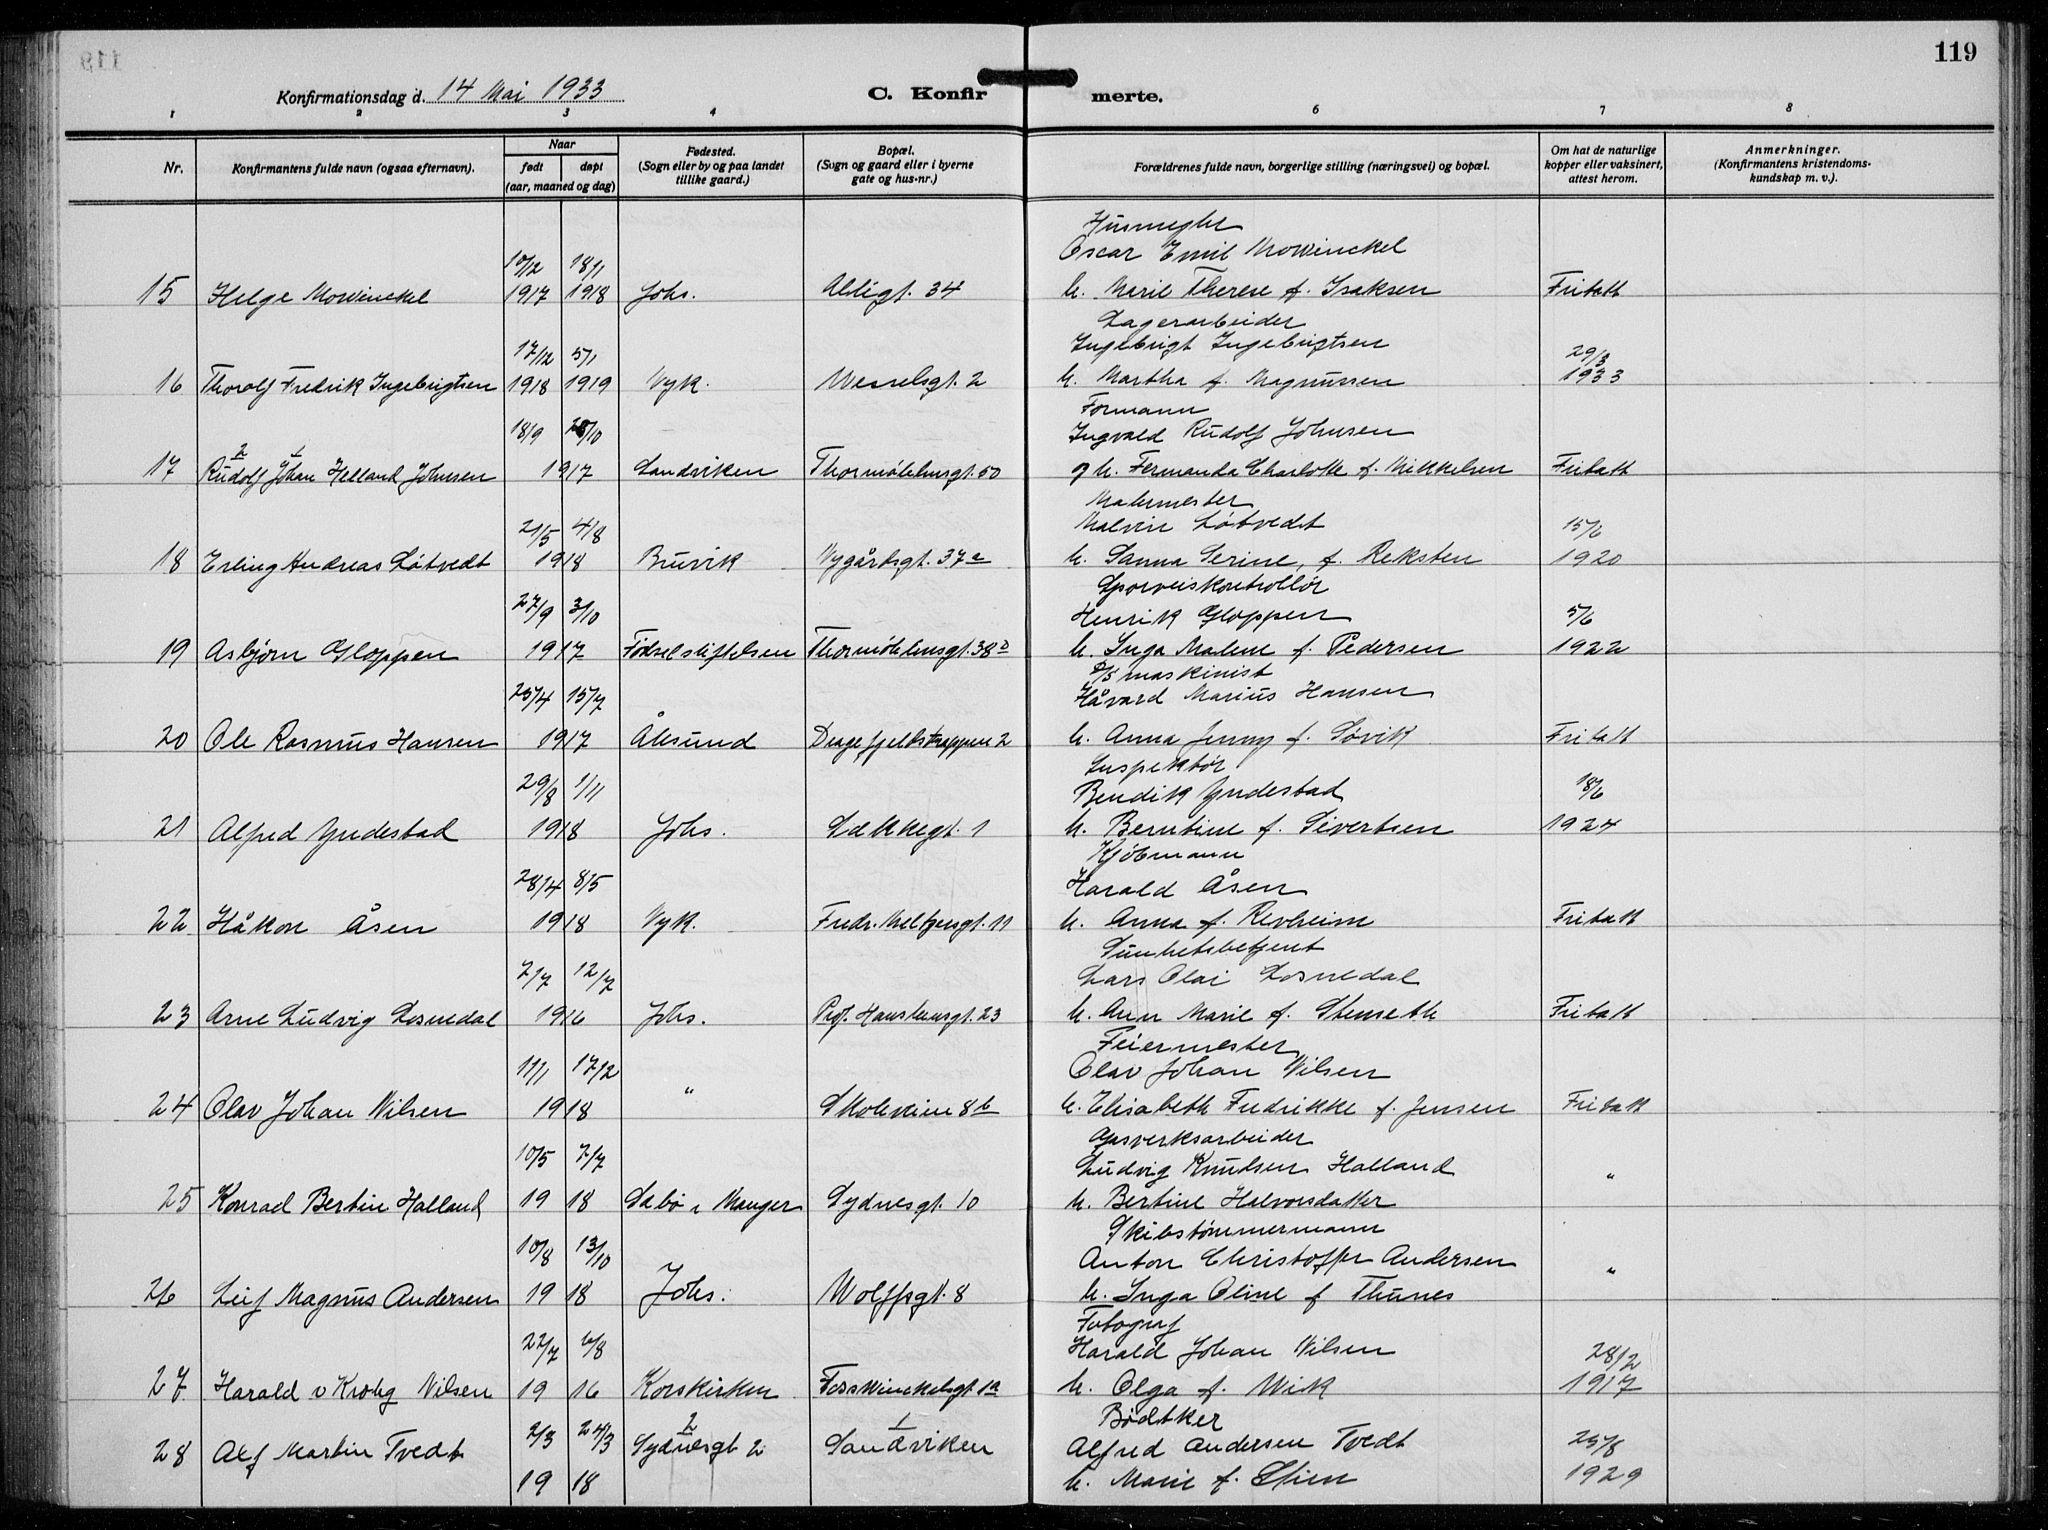 119
Konfirmationsdag d. 14 Mai 1933
C. Konfir merte.
1 2 3 4 6 7 8
Nr.
Konfirmantens fulde navn (ogsaa efternavn).
Naar
født døpt
(aar, maaned og dag)
Fødested.
(Sogn eller by og paa landet
tillike gaard.)
Bopæl.
(Sogn og gaard eller i byerne
gate og hus-nr.)
Forældrenes fulde navn, borgerlige stilling (næringsvei) og bopæl.
Om hat de naturlige
kopper eller vaksinert,
attest herom.
Anmerkninger.
(Konfirmantens kristendoms-
kundskap m. v.).
Husmegler
Oscar Emil Mowinckel
10/12 18/1
15 Helge Mowinckel 1917 1918 Johs. Allégt. 34 h. Marie Therese f. Isaksen Fritatt
Lagerarbeider
Ingebrigt Ingebrigtsen
17/12 5/1 29/3
16 Thorolf Fredrik Ingebrigtsen 1918 1919 Nyk. Wesselsgt. 2 h. Martha f. Magnussen 1933
Formann
18/9 28/10 Ingvald Rudolf Johnsen
2 1
17 Rudolf Johan Helland Johnsen 1917 Sandviken Thormøhlensgt. 50 og h. Fernanda Charlotte f. Mikkelsen Fritatt
Malermester
21/5 4/8 Malvin Løtvedt 15/6
18 Erling Andreas Løtvedt 1918 Buvik Nygårdsgt. 37a h. Sanna Serine, f. Reksten 1920
Sporveiskontrollør
27/9 3/10 Henrik Gloppen 5/6
19 Asbjørn Gloppen 1917 Fødselstiftelsen Thormøhlensgt. 38b h. Inga Malene f. Pedersen 1922
D/S maskinist
25/4 15/7 Håvard Marius Hansen
20 Ole Rasmus Hansen 1917 Ålesund Dragefjeldstrappen 2 h. Anna Jenny f. Søvik Fritatt
Inspektør
29/8 1/11 Bendik Yndestad 18/6
21 Alfred Yndestad 1918 Johs. Løkkegt. 1 h. Berntine f. Sivertsen 1924
Kjøbmann
28/4 8/5 Harald Åsen
22 Håkon Åsen 1918 Nyk. Fredr. Meltzersgt. 11 h. Anna f. Revheim Fritatt
Sunhetsbetjent
7/7 12/7 Lars Olai Losnedal
23 Arne Ludvig Losnedal 1916 Johs. Prof. Hansteensgt. 23 h. Ann Marie f. Stenseth Fritatt
Feiermester
11/1 17/12 Olav Johan Nilsen
24 Olav Johan Nilsen 1918 " Skoleveien 8b h. Elisabeth Fredrikke f. Jensen Fritatt
Gasverksarbeider
10/5 7/7 Ludvig Knudsen Halland "
25 Konrad Bertin Halland 19 18 Sæbø i Manger Sydnesgt. 10 h. Bertine Halvorsdatter
Skibstømmermann
10/8 13/10 Anton Christoffer Andersen "
26 Leif Magnus Andersen 19 18 Johs. Wolffsgt. 8 h. Inga Oline f Thunes
Fotograf
22/7 6/8 Harald Johan Nilsen 28/2
27 Harald v Krohg Nilsen 19 16 Korskirken Fosswinckelsgt. 1a h. Olga f. Wiik 1917
Bødtker
2 1
28 Alf Martin Tvedt 2/3 24/3 Sydnesgt 2 Sandviken Alfred Andersen Tvedt 25/8
19 18 h. Marie f. Stien 1929